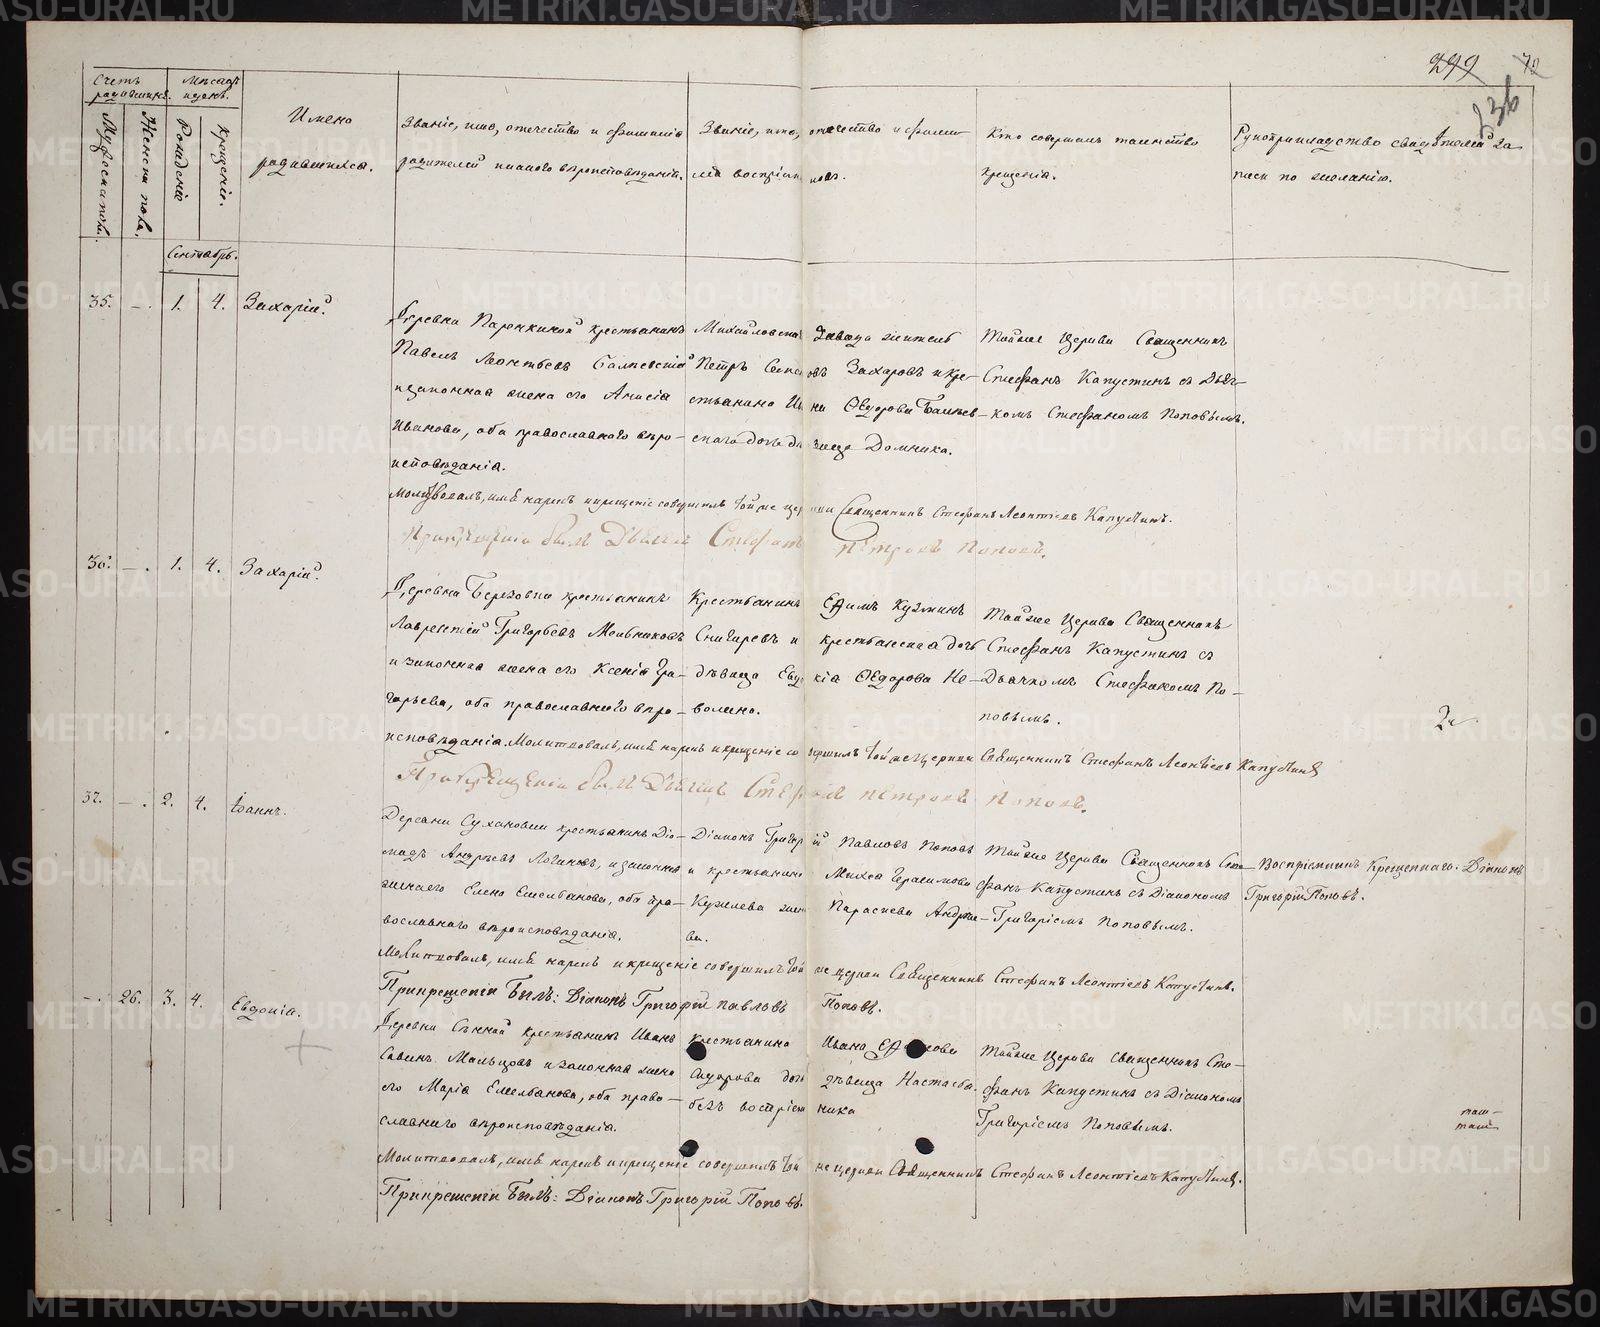 299 72
236
Счетъ родившихъ.
Мѣсяцъ и день.
Мужеска пола.
Женска пола.
Рожденіе
Крещеніе.
Имена родившихся.
Званіе, имя, отчество и фамилія
родителей и какого вѣроисповѣданія.
Званіе, имя, отчество и фами-
лія воспріемниковъ.
Кто совершалъ таинство
крещенія.
Рукоприкладство свидѣтелей за-
писи по желанію.
Сентябрь.
35. — . 1. 4. Захарій.
Деревни Паренкиной крестьянинъ
Павелъ Леонтьевъ
и законная жена его Анисія
Иванова, оба православнаго вѣро-
исповѣданія.
Михайловскаго Завода житель
Петръ Захаровъ и кре-
стьянина Ѳедорова
скаго дочь дѣвица Домника.
Тойже Церкви Священникъ
Стефанъ Капустинъ съ Дьяч-
комъ Стефаномъ Поповымъ.
Молитвовалъ, имя нарекъ и крещеніе совершилъ той же церкви Священникъ Стефанъ Леонтіевъ Капустинъ.
При крещеніи былъ Дьячекъ Стефанъ Петровъ Поповъ.
36. — . 1. 4. Захарій.
Деревни Березовки крестьянинъ
Лаврентій Григорьевъ Мельниковъ
и законная жена его Ксенія Гри-
горьева, оба православнаго вѣро-
исповѣданія.
Крестьянинъ Ефимъ Кузминъ
Снигиревъ и крестьянская дочь
дѣвица Евдокія Ѳедорова Не-
волина.
Тойже Церкви Священникъ
Стефанъ Капустинъ съ
Дьячкомъ Стефаномъ По-
повымъ.
Молитвовалъ, имя нарекъ и крещеніе совершилъ той же церкви Священникъ Стефанъ Леонтіевъ Капустинъ
При крещеніи былъ Дьячекъ Стефанъ Петровъ Поповъ.
37. — . 2. 4. Іоаннъ.
Деревни Сухановки крестьянинъ Діо-
мидъ Андреевъ Логиновъ, и законная
жена его Елена Емельянова, оба пра-
вославнаго вѣроисповѣданія.
Діаконъ Григорій Павловъ Поповъ
и крестьянина Михея Герасимова
Кужлева жена Параскева Андрее-
ва.
Тойже Церкви Священникъ Сте-
фанъ Капустинъ съ Діакономъ
Григоріемъ Поповымъ.
Воспріемникъ Крещеннаго: Діаконъ
Григорій Поповъ.
Молитвовалъ, имя нарекъ и крещеніе совершилъ той же церкви Священникъ Стефанъ Леонтіевъ Капустинъ.
При крещеніи Былъ: Діаконъ Григорій Павловъ Поповъ.
— . 26. 3. 4. Евдокія.
Деревни Сѣнной крестьянинъ Иванъ
Савинъ Мальцовъ и законная жена
его Марія Емельянова, оба право-
славнаго вѣроисповѣданія.
крестьянина Ивана
Сидорова дочь дѣвица Настасья.
безъ воспріемника
Тойже Церкви Священникъ Сте-
фанъ Капустинъ съ Діакономъ
Григоріемъ Поповымъ.
Молитвовалъ, имя нарекъ и крещеніе совершилъ той же церкви Священникъ Стефанъ Леонтіевъ Капустинъ.
При крещеніи Былъ: Діаконъ Григорій Поповъ.
METRIKI.GASO-URAL.RU